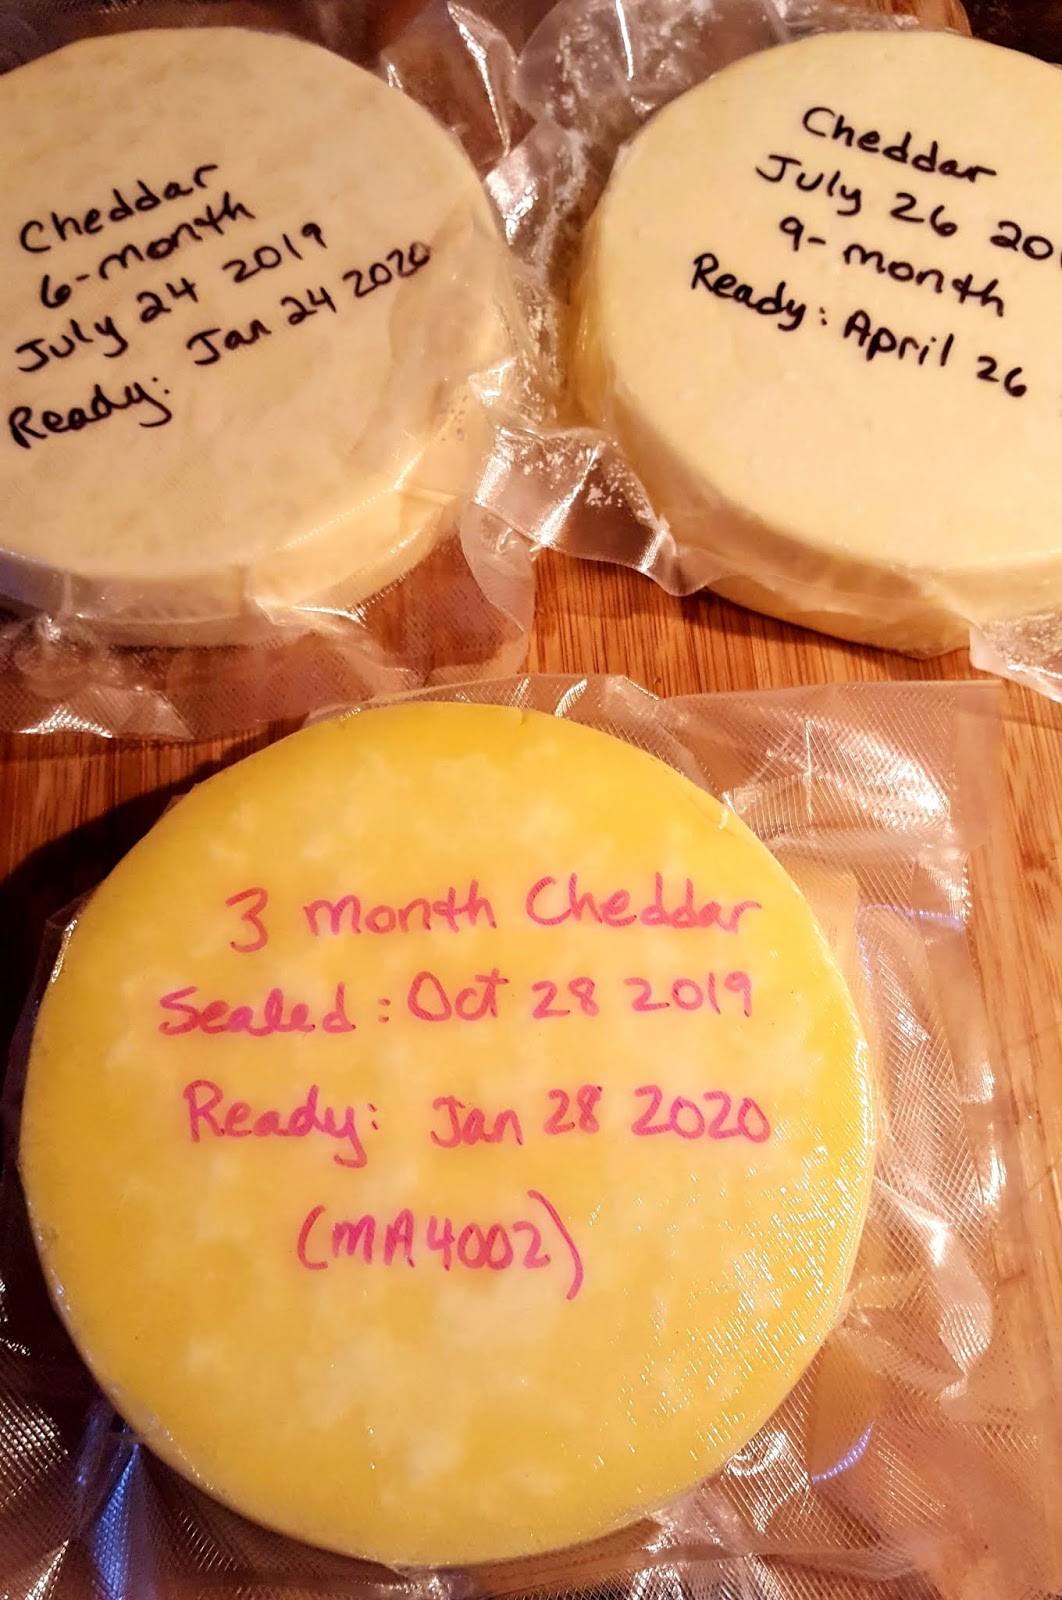 Cheddar
6-month
July 24 2019
Ready: Jan 24 2020
Cheddar
July 26 20
9-month
Ready: April 26
3 month Cheddar
Sealed: Oct 28 2019
Ready: Jan 28 2020
(MA4002)